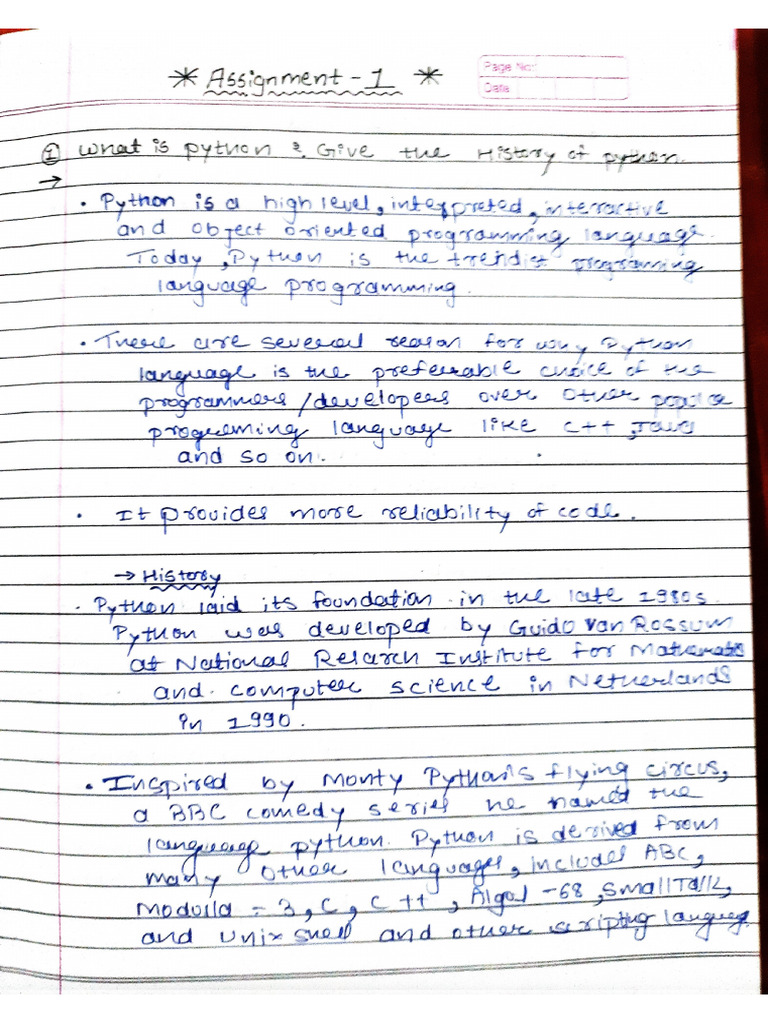 * Assignment - 1 *
Page No:
Date
① What is python & Give the History of python.
→
• Python is a high level, interpreted, interactive
and object oriented programming language.
Today, Python is the trendist programming
language programming.
• There are several reason for why Python
language is the preferrable choice of the
programmers/developers over other popular
programming language like C++, Java
and so on.
• It provides more reliability of code.
→ History
• Python laid its foundation in the late 1980s.
Python was developed by Guido Van Rossum
at National Reserch Institute for Mathematics
and computer science in Netherlands
in 1990.
• Inspired by Monty Python's flying circus,
a BBC comedy series he named the
language python. Python is derived from
many other languages, includes ABC,
Modula - 3, C, C++, Algol -68, SmallTalk,
and Unix shell and other scripting language